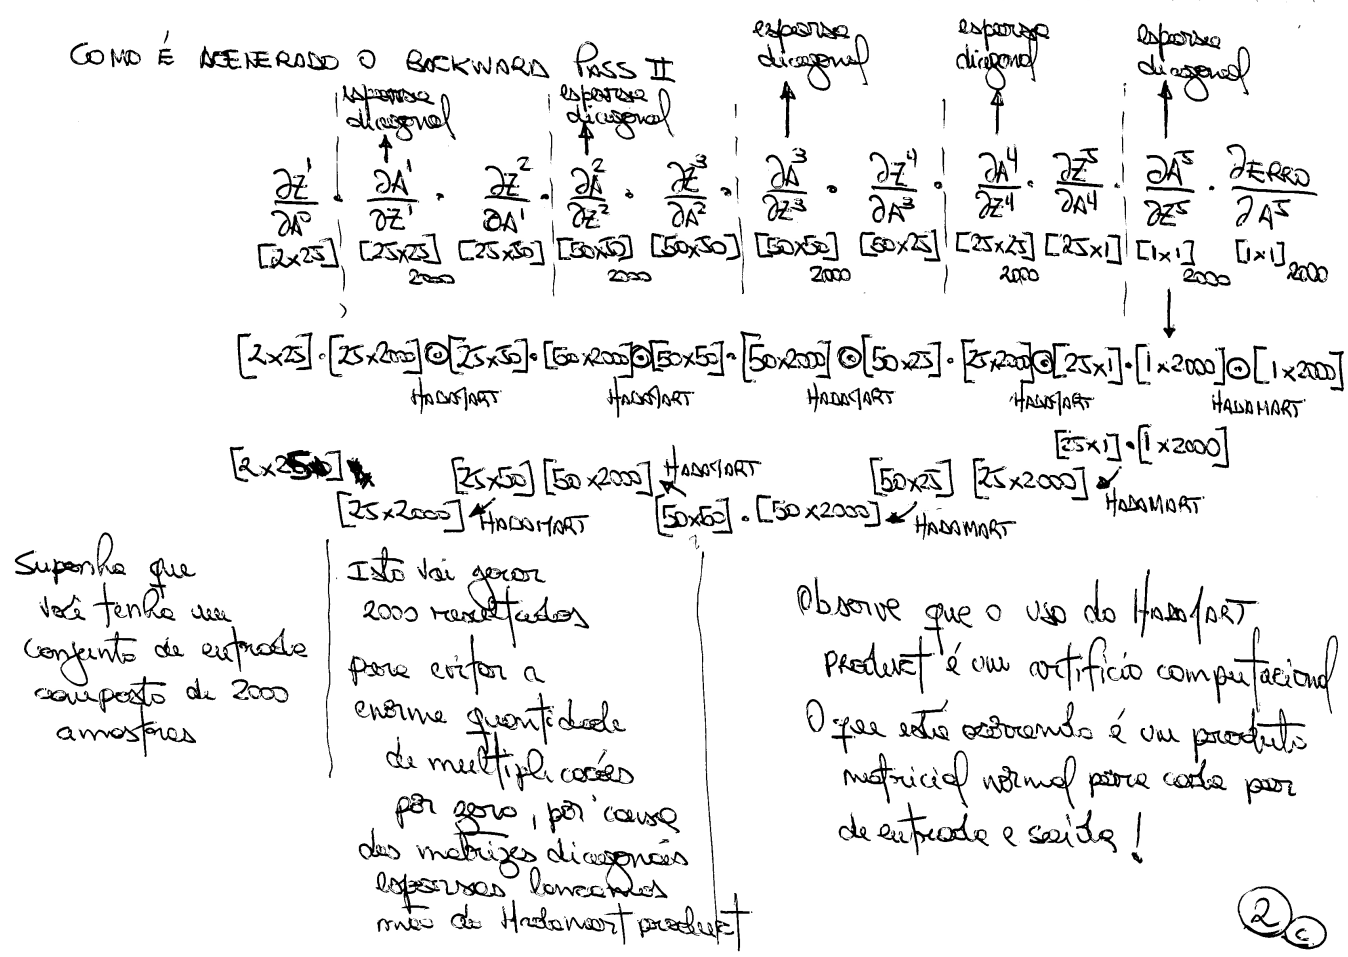 COMO É ACELERADO O BACKWARD PASS II
esparsa diagonal
esparsa diagonal
esparsa diagonal
esparsa diagonal
esparsa diagonal
∂Z¹/∂A⁰ · ∂A¹/∂Z¹ · ∂Z²/∂A¹ · ∂A²/∂Z² · ∂Z³/∂A² · ∂A³/∂Z³ · ∂Z⁴/∂A³ · ∂A⁴/∂Z⁴ · ∂Z⁵/∂A⁴ · ∂A⁵/∂Z⁵ · ∂ERRO/∂A⁵
[2x25] [25x25] [25x50] [50x50] [50x50] [50x50] [50x25] [25x25] [25x1] [1x1] [1x1]
2000 2000 2000 2000 2000 2000
[2x25] · [25x2000] ⊙ [25x50] · [50x2000] ⊙ [50x50] · [50x2000] ⊙ [50x25] · [25x2000] ⊙ [25x1] · [1x2000] ⊙ [1x2000]
HADAMART HADAMART HADAMART HADAMART HADAMART
[25x1] · [1x2000]
[2x25] [25x50] [50x2000] HADAMART [50x25] [25x2000] HADAMART
[25x2000] HADAMART [50x50] · [50x2000] HADAMART
Suponha que
você tenha um
conjunto de entrada
composto de 2000
amostras
Isto vai gerar
2000 resultados
para evitar a
enorme quantidade
de multiplicações
por zero, por causa
das matrizes diagonais
esparsas lançamos
mão do Hadamart product
Observe que o uso do HADAMART
PRODUCT é um artifício computacional
O que está ocorrendo é um produto
matricial normal para cada par
de entrada e saída!
2
C